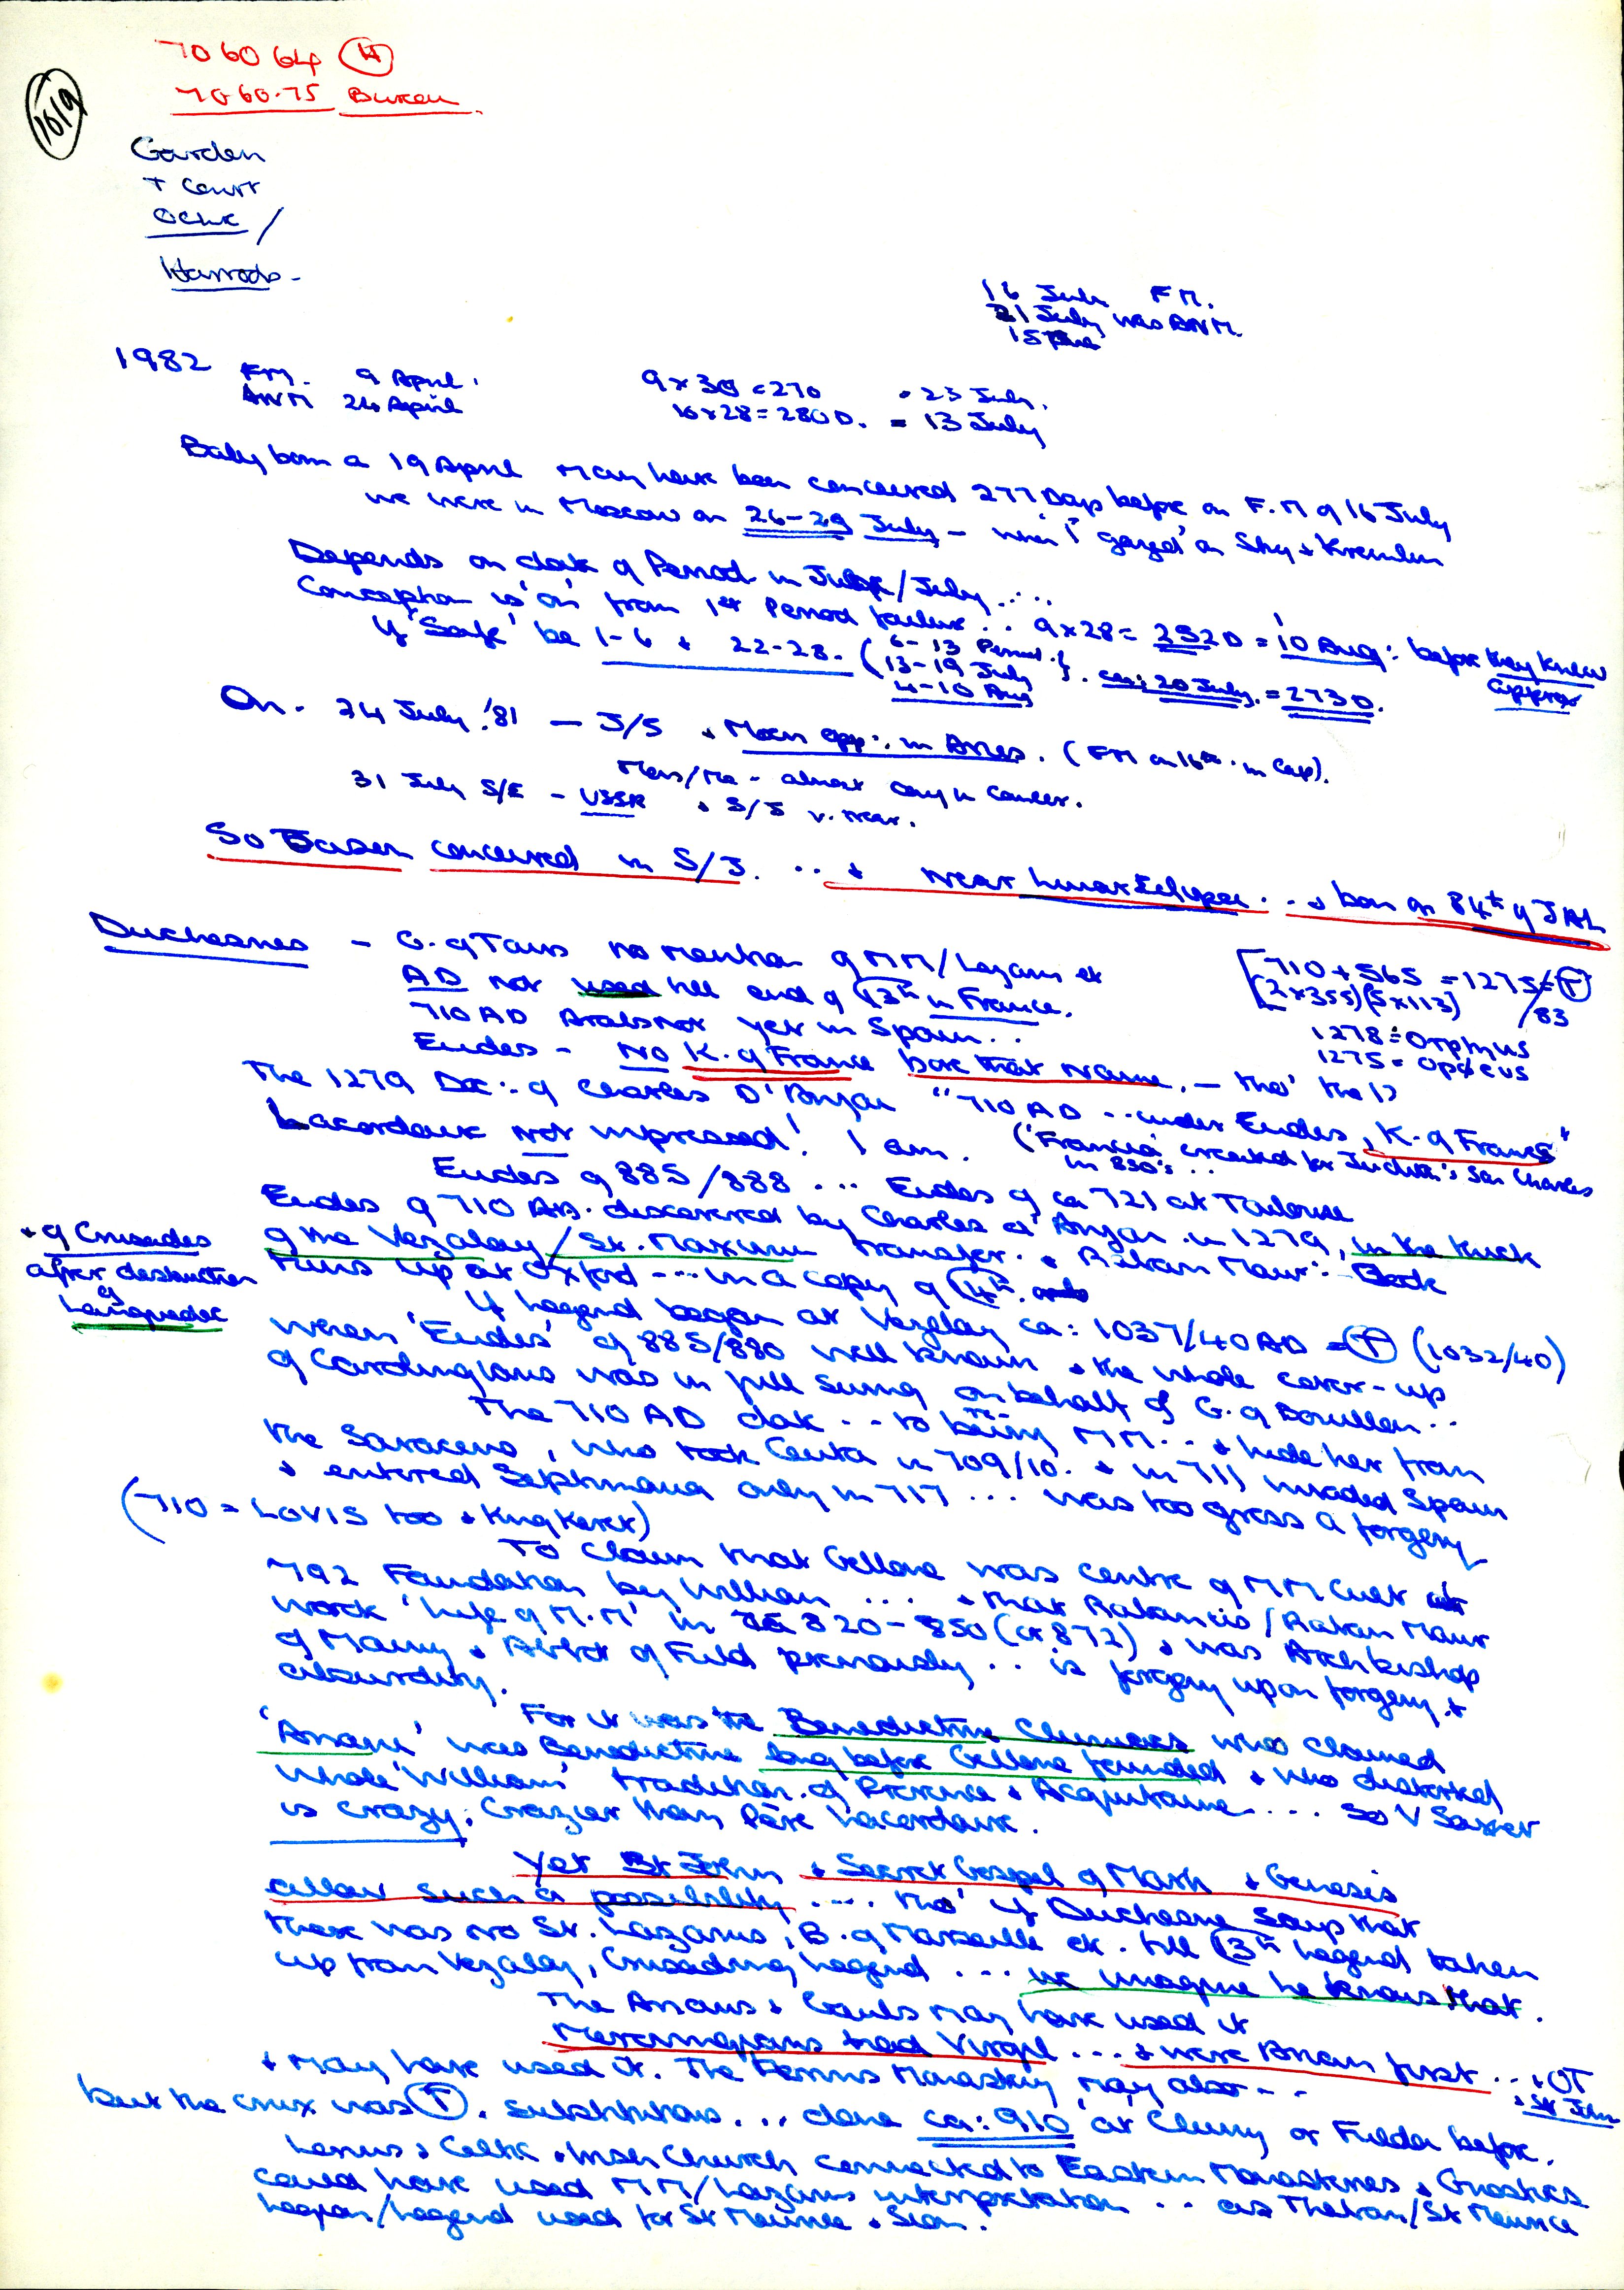 1619
706064 (H)
7060.75 Bureau
Garden
+ Court
Harrods -
16 July F.M.
21 July was ANM
1982 F.M. 9 April.
ANM 24 April
9 x 30 = 270 = 23 July.
10 x 28 = 280 D. = 13 July
Baby born a 19 April may have been conceived 277 Days before on F.M of 16 July
we were in Moscow on 26-29 July - when I 'gazed' on Sky + Kremlin
Depends on date of Period in July ....
Conception is 'on' from 1st Period failure ... 9 x 28 = 252 D = 10 Aug: before they knew
approx
If 'Safe' be 1-6 + 22-28. (6-13 Period.
13-19 July
4-10 Aug
ca: 20 July. = 273 D.
On. 24 July '81 - J/S + Moon opp: in Aries. (FM on 16th in Cap).
Mars/Me - almost conj in Cancer.
31 July S/E - USSR + S/J v. near.
So conceived in S/J. .. + near Lunar Eclipse .. + born on 84th of JAL
Duchesnes - G. of Tours no mention of MM/Lazarus et
AD not used till end of 13th in France.
710 AD Arabs not yet in Spain ..
[710 + 565 = 1275 = (T)
(2x355)(5x113) /83
1278 = Orpheus
1275 =
Eudes - No K. of France bore that name. - tho' the 1)
The 1279 Doc: of Charles D'Anjou "710 AD .. under Eudes, K. of France"
Lacordaire not impressed! I am. ('Francia' created for Judith's son Charles
in 830's ..
Eudes of 885/888 ... Eudes of ca 721 at Toulouse
Eudes of 710 AD. discovered by Charles d'Anjou in 1279, in the thick
of the Vezalay/St. Maximin transfer. + Raban Maur:
+ of Crusades
after destruction
of
Languedoc
turns up at Oxford .... in a copy of 14th.
If Legend began at Vezelay ca: 1037/40 AD = (T) (1032/40)
When 'Eudes' of 885/880 well known + the whole cover-up
of Carolingians was in full swing on behalf of G. of Bouillon ..
The 710 AD date .. to bring MM .. + hide her from
the Saracens, who took Ceuta in 709/10. + in 711 invaded Spain
+ entered Septimania only in 717 ... was too gross a forgery
(710 = LOVIS too +
To Claim that Gellone was centre of MM Cult at
792 Foundation by William ... + that Rabancio/Raban Maur
wrote 'Life of M.M' in 820-850 (or 872) + was Archbishop
of Mainz + Abbot of Fuld previously .. is forgery upon forgery +
absurdity.
For it was the Benedictine Cluniacs who claimed
'Aniane' was Benedictine long before Gellone founded + who distorted
whole 'William' tradition of Provence + Acquitaine .... So V Saxer
is crazy; Crazier than Père Lacordaire.
Yet St John + Secret Gospel of Mark + Genesis
allow such a possibility .... tho' if Duchesne says that
there was no St. Lazarus, B. of Marseille etc. till 13th Legend taken
up from Vezalay, Crusading legend ... we imagine he knows that.
The Arians + Gauls may have used it
Merovingians had Virgil ... + were Arian first .. + OT
+ St John
+ may have used it. The Lerins Monastery may also --
but the crux was (T). substitutions ... done ca: 910 at Cluny or Fulda before.
Lerins + Celtic + Irish Church connected to Eastern Monasteries + Gnostics
could have used MM/Lazarus interpretation .. as Theban/St Maurice
Legion/Legend used for St Maurice + Sion.